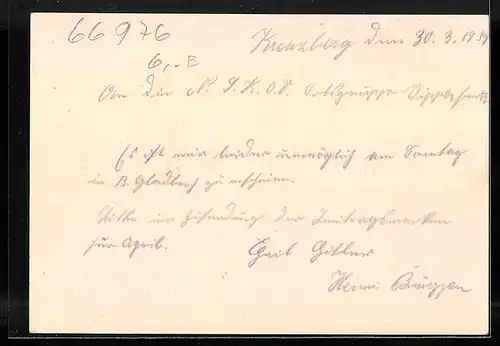 66976
6,-B
Kreuzberg den 30. 3. 1939
An die N. S. K. O. V. Ortsgruppe
Es ist mir leider unmöglich am Sonntag
in B. Gladbach zu erscheinen.
Bitte um Zusendung der Beitragsmarken
für April. Heil Hitler
Henri Brüggen